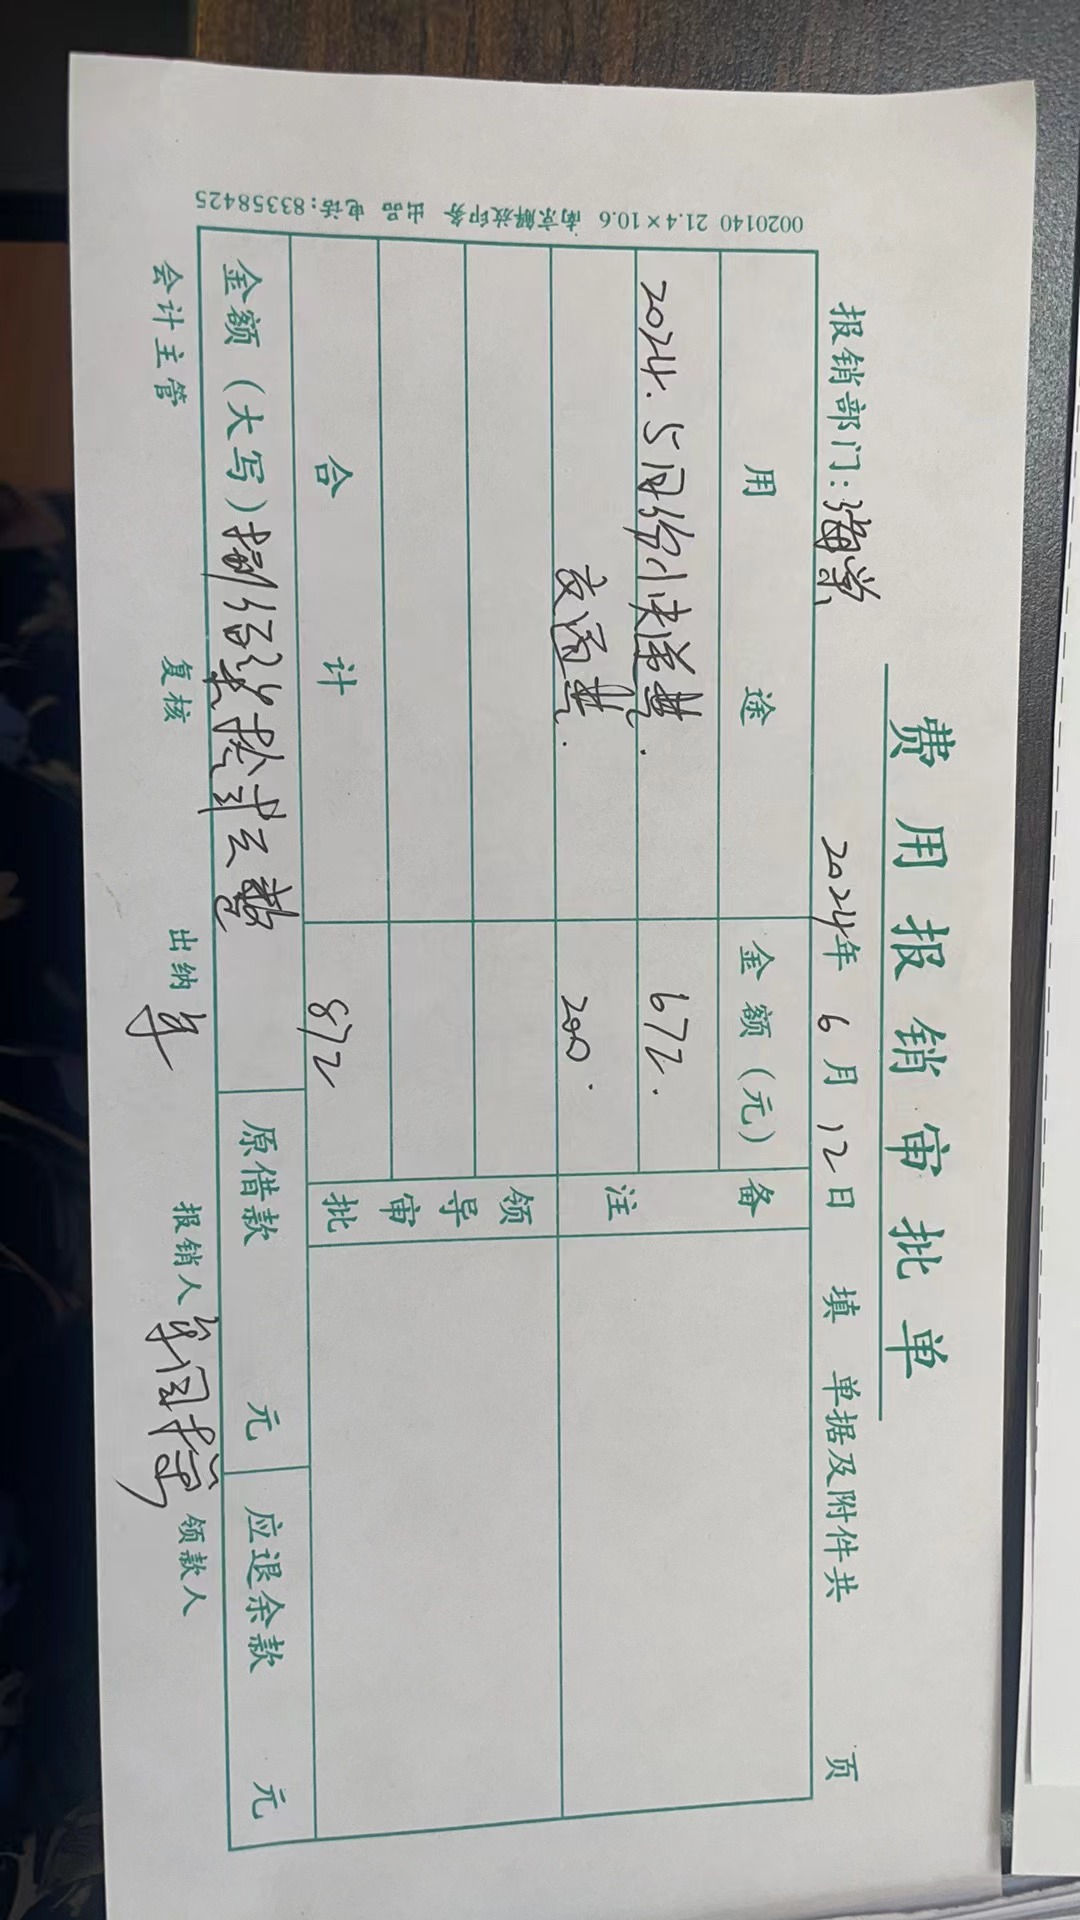 费用报销审批单
报销部门: 2024年 6月 12日 填 单据及附件共 页
用途 金额(元) 备注
2024.5月份小快递费. 672.
交通费. 200.
领导审批
合计 872
金额(大写)捌佰柒拾贰元整 原借款 元 应退余款 元
会计主管 复核 出纳 报销人 领款人
0020140 21.4×10.6 南京解放印务 出品 电话:83358425